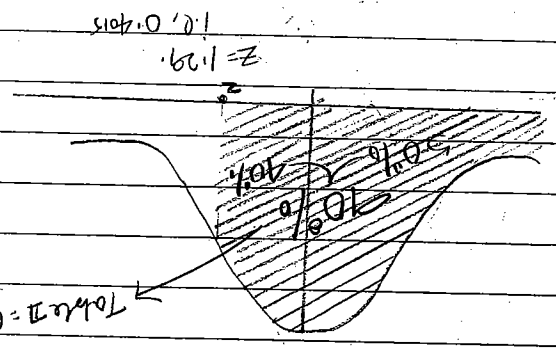 Table II =
90%
50% 40%
z
Z = 1.29.
i.e., 0.4015